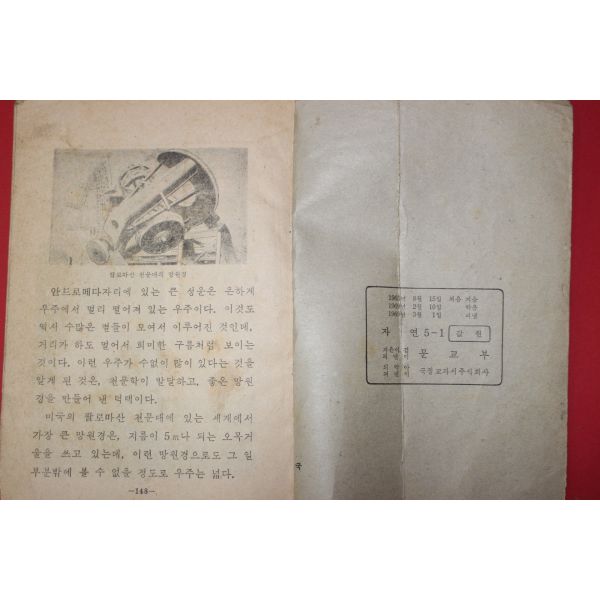 팔로마산 천문대의 망원경
안드로메다자리에 있는 큰 성운은 은하계
우주에서 멀리 떨어져 있는 우주이다. 이것도
역시 수많은 별들이 모여서 이루어진 것인데,
거리가 하도 멀어서 희미한 구름처럼 보이는
것이다. 이런 우주가 수없이 많이 있다는 것을
알게 된 것은, 천문학이 발달하고, 좋은 망원
경을 만들어 낸 덕택이다.
미국의 팔로마산 천문대에 있는 세계에서
가장 큰 망원경은, 지름이 5m나 되는 오목거
울을 쓰고 있는데, 이런 망원경으로도 그 일
부분밖에 볼 수 없을 정도로 우주는 넓다.
—148—
국
1965년 8월 15일 처음 지음
1969년 2월 10일 박음
1969년 3월 1일 펴냄
자 연 5-1
문 교 부
국정교과서주식회사